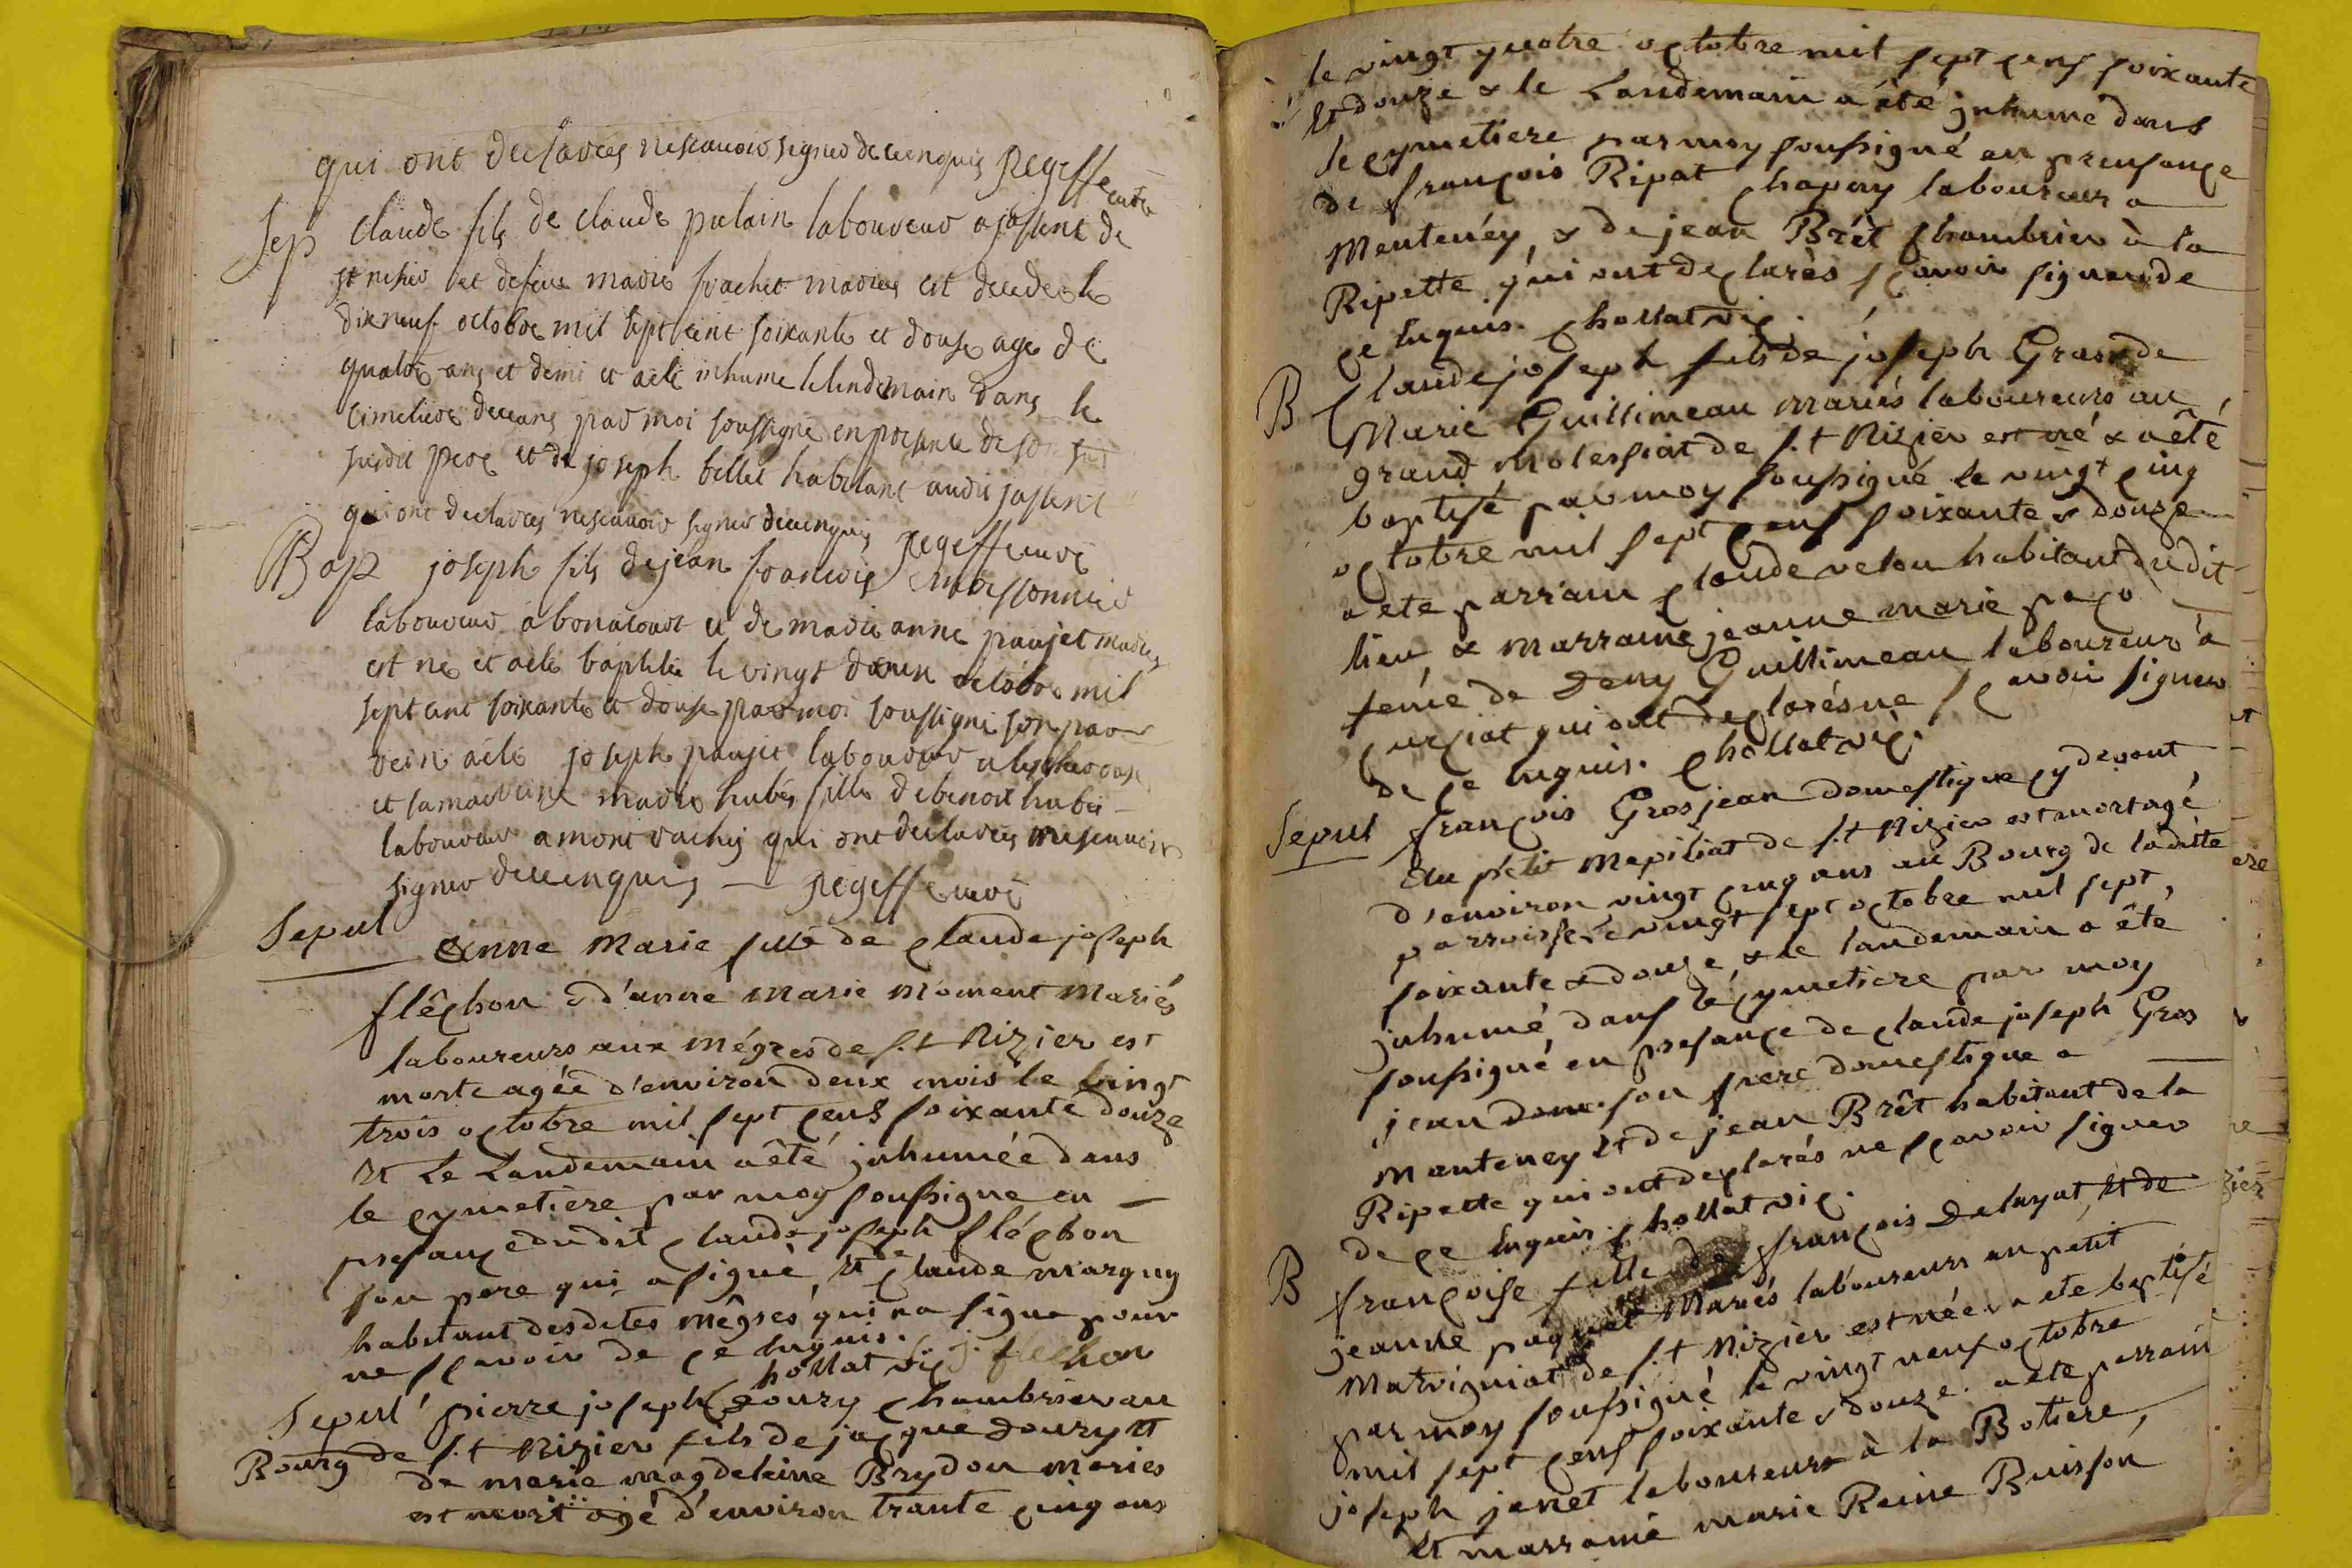 qui ont declarés nescavoir signer de ce enquis pegeffe curé
Sep claude fils de claude pulain laboureur a jassent de
st nisier et defeue marie frachet mariés est decede le
dixneuf octobre mil sept cent soixante et douse age de
quatre ans et demi et aété inhume le lendemain dans le
cimetiere deceans par moi soussigné en presence de son
susdit pere et de joseph billet habitant audit jassent
qui ont declarés nescavoir signer de ce enquis pegeffe curé
Bap joseph fils de jean francois moissonnier
laboureur a bonacourt et de marie anne paujet mariés
est né et aété baptisé le vingt deux octobre mil
sept cent soixante et douse par moi soussigné son par
rein aété joseph paujet laboureur
et sa marreine marie hubés fille de benoit hubés
laboureur a mont rachis qui ont declarés nescavoir
signer de ce enquis pegeffe curé
Sepul Anne Marie fille de claude joseph
flêchon & d'anne Marie Moment Mariés
laboureurs aux mégres de s.t Nizier est
morte agée d'environ deux mois le vingt
trois octobre mil sept cens soixante douze
et Le Landemain a été inhumée dans
le cymetiere par moy soussigné en
presance dudit claude joseph fléchon
son pere qui a signé, et de claude marguy
habitant desdites mêgres qui na signe pour
ne scavoir de ce enquis.
chollat vic J. flechon
Sepul pierre joseph Doury chambrier au
Bourg de s.t Nizier fils de jacque Doury et
de marie magdeleine Brydon mariés
est mort agé d'environ trante cinq ans
le vingt quatre octobre mil sept cens soixante
et douze & le Landemain a été inhumé dans
le cymetiere par moy soussigné en prensance
de françois Ripat chapuy laboureur a
Menteney, & de jean Brêt chambrier à la
Ripette qui ont declarés scavoir signer de
ce enquis. chollat vic.
B Claude joseph fils de joseph Gras & de
Marie Guillimeau mariés laboureurs au
grand Molessiat de s.t Nizier est né & a été
baptisé par moy soussigné le vingt cinq
octobre mil sept cens soixante & douze
a ete parrain claude velon habitant dudit
lieu, & marraine jeanne marie
feme de Deny Guillimeau laboureur a
curciat qui ont declarés ne scavoir signer
de ce enquis. chollat vic.
Sepul françois Grosjean domestique cy devant
du petit Mepiliat de s.t Nizier est mort agé
d'environ vingt cinq ans au Bourg de la dite
parroisse le vingt sept octobre mil sept,
soixante & douze, & le landemain a été
inhumé dans le cymetiere par moy
soussigné en presance de claude joseph Gros
jean son frere domestique a
Manteney et de jean Brêt habitant de la
Ripette qui ont declarés ne scavoir signer
de ce enquis. chollat vic.
B françoise fille de françois Delayat, et de
jeanne paquet Mariés laboureurs au petit
Marvigniat de s.t Nizier est née & a ete baptisé
par moy soussigné le vingt neuf octobre
mil sept cens soixante & douze. a ete parrain
joseph janet laboureurs à la Botiere,
et marraine marie Reine Buisson